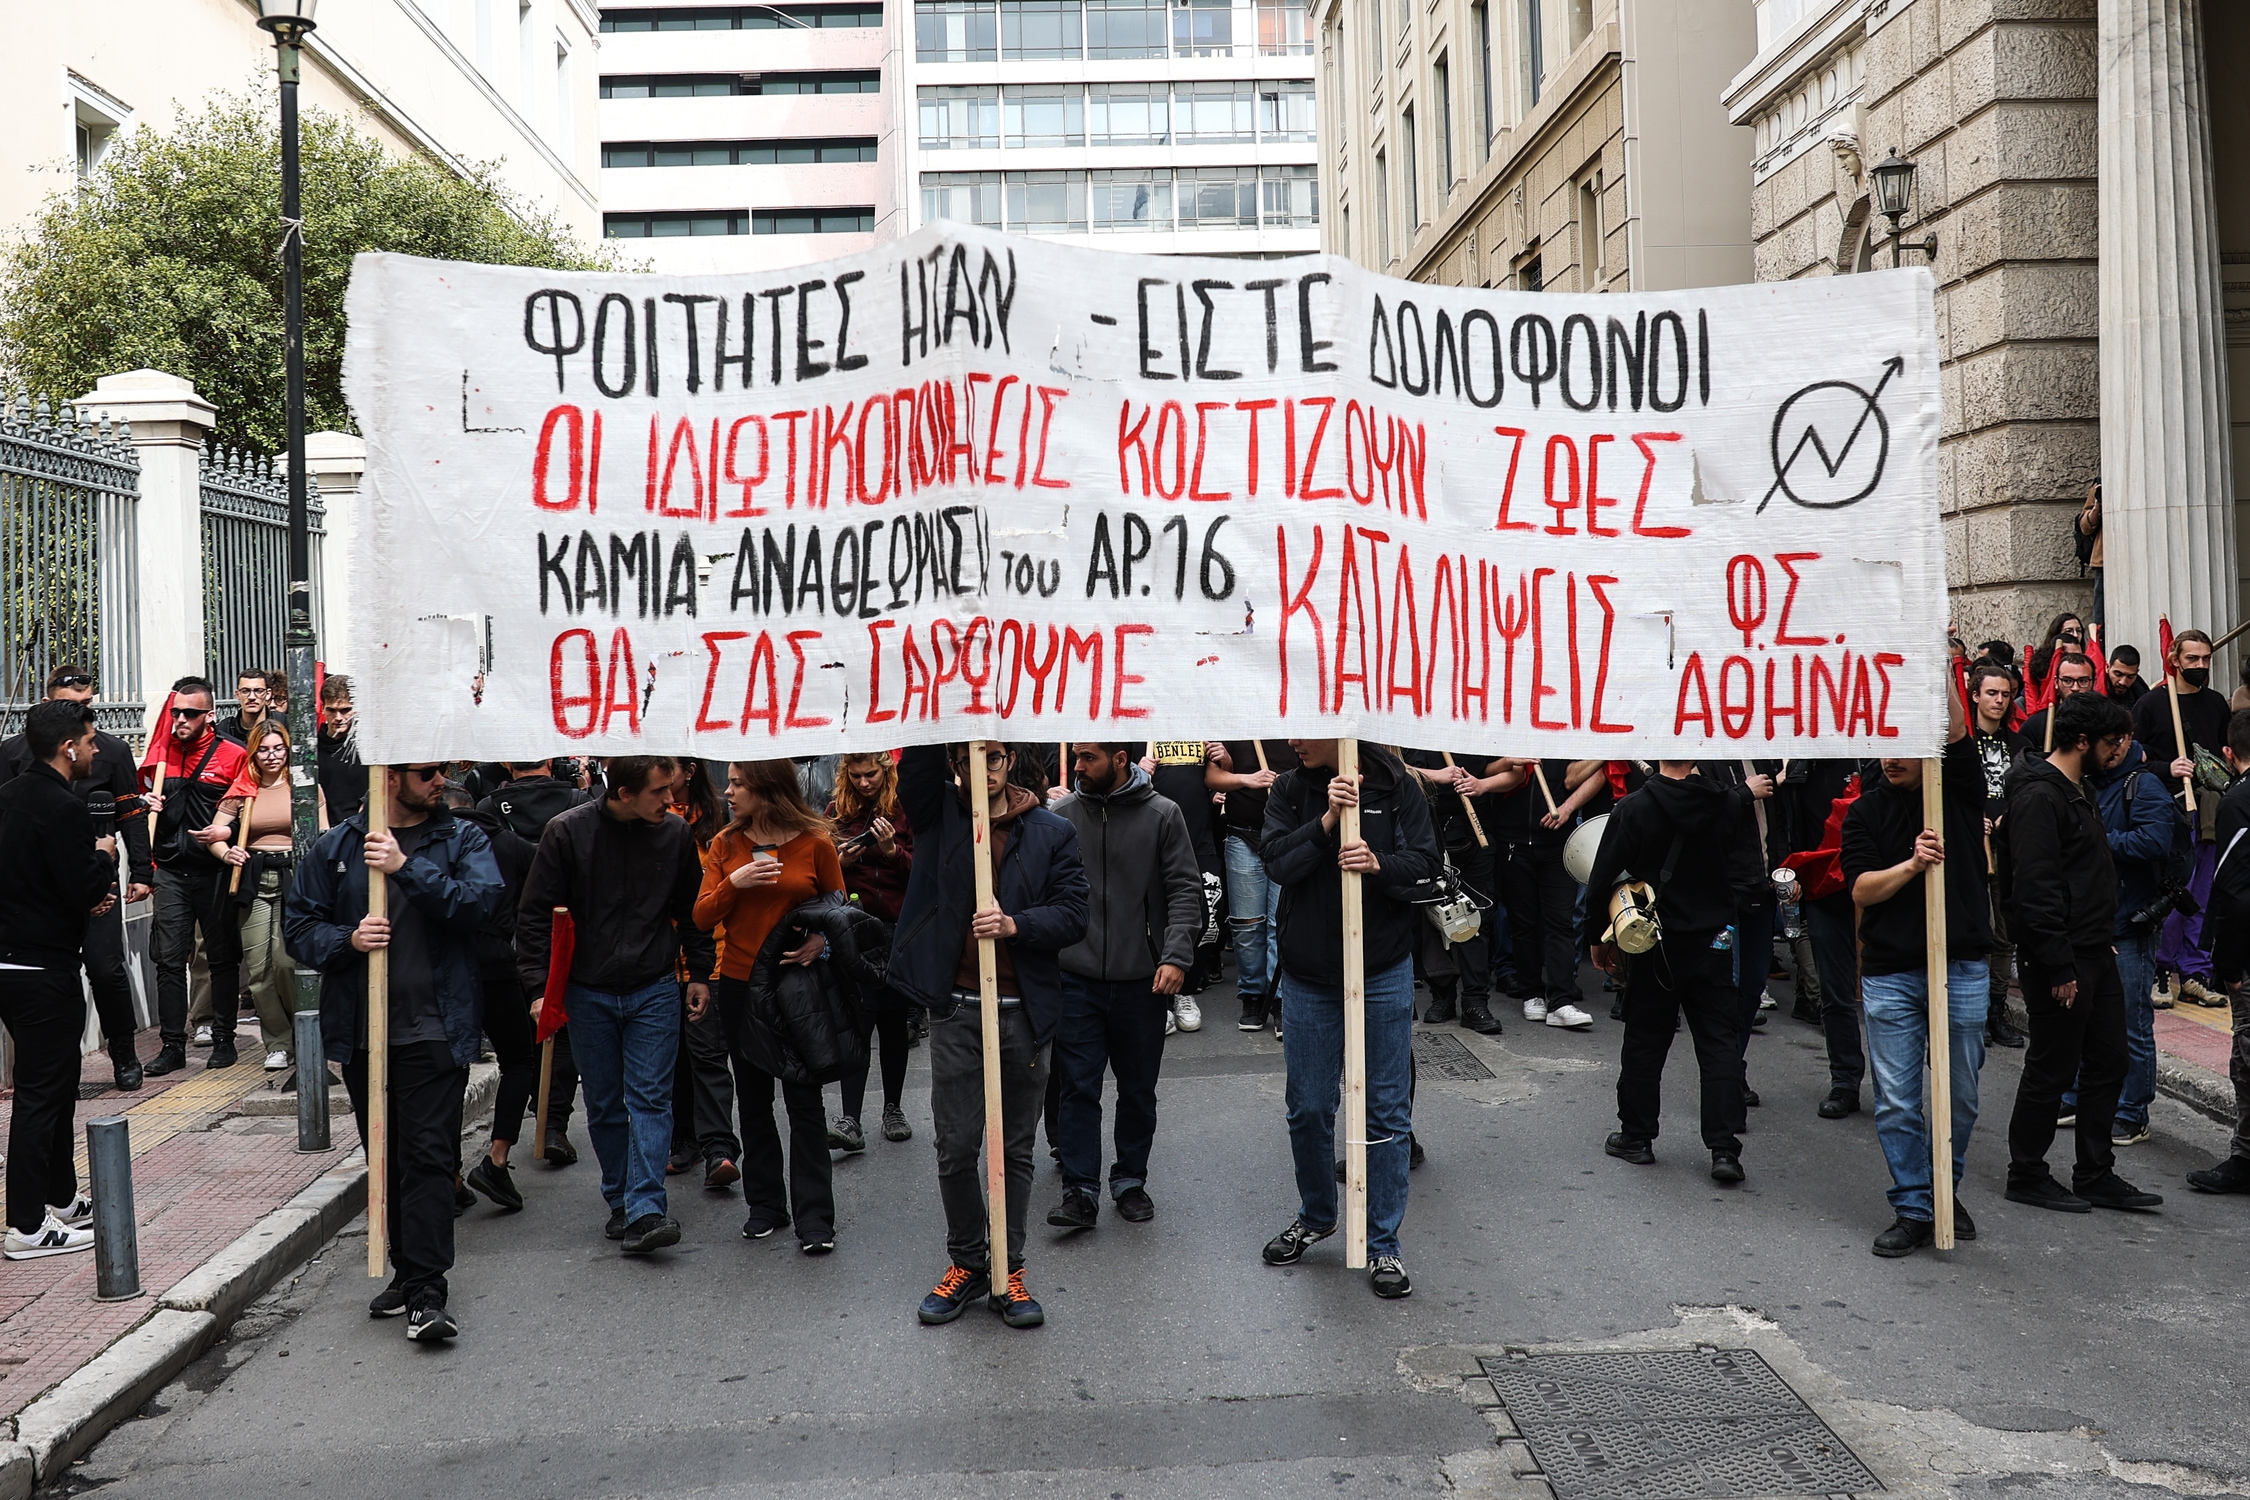 ΦΟΙΤΗΤΕΣ ΗΤΑΝ - ΕΙΣΤΕ ΔΟΛΟΦΟΝΟΙ
ΟΙ ΙΔΙΩΤΙΚΟΠΟΙΗΣΕΙΣ ΚΟΣΤΙΖΟΥΝ ΖΩΕΣ
ΚΑΜΙΑ ΑΝΑΘΕΩΡΗΣΗ του ΑΡ.16
ΘΑ ΣΑΣ ΣΑΡΩΣΟΥΜΕ - ΚΑΤΑΛΗΨΕΙΣ
Φ.Σ.
ΑΘΗΝΑΣ
BENLEE